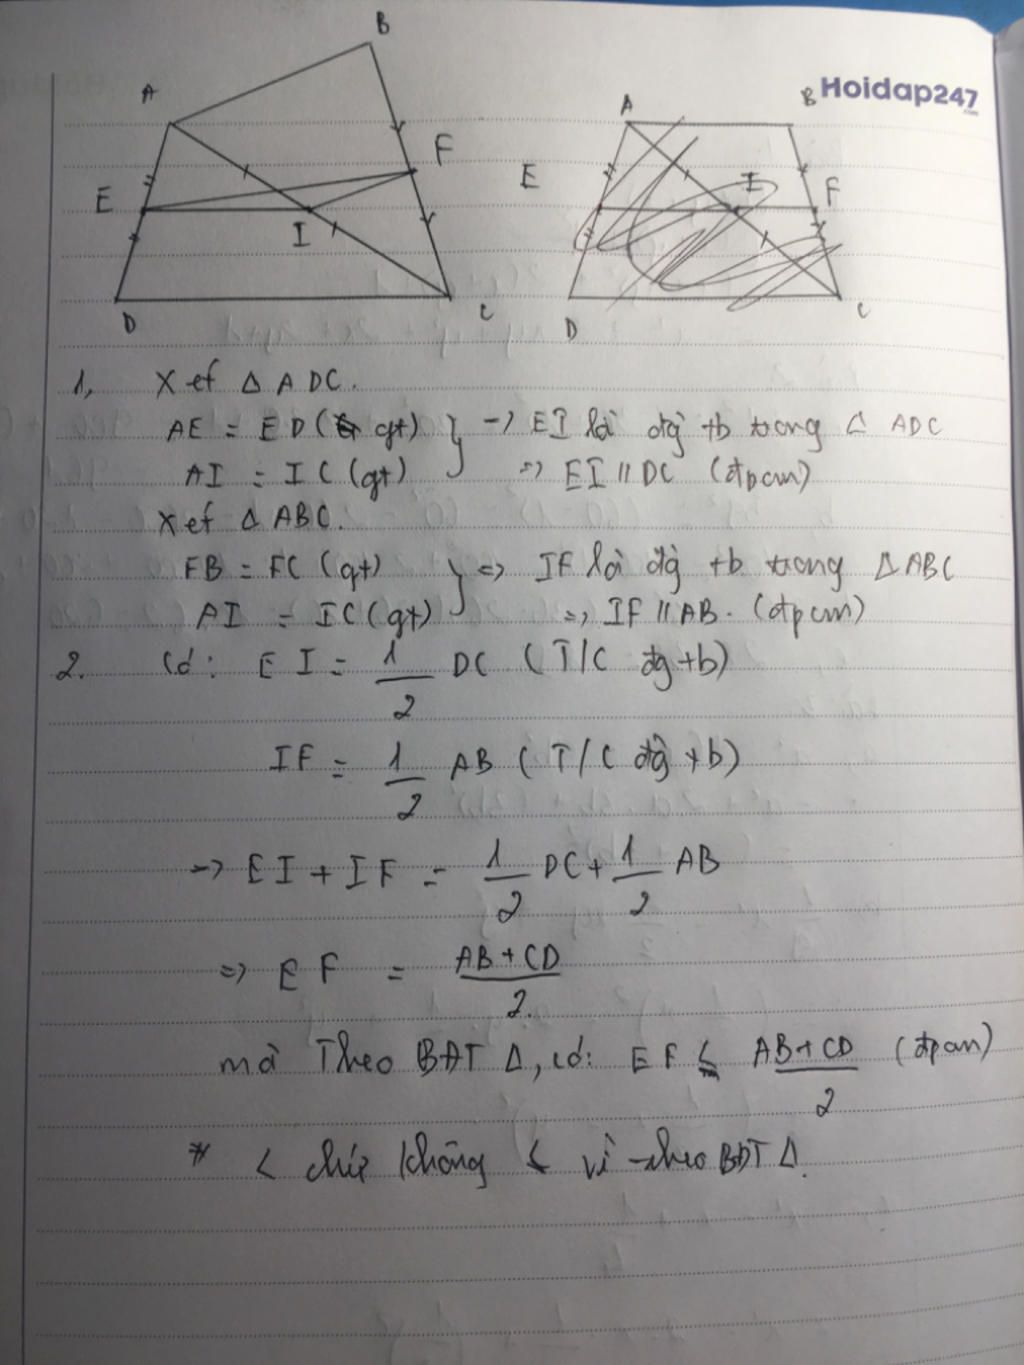 Hoidap247
.com
A B F E I D C
A B E I F D C
1, Xét Δ ADC.
AE = ED ( gt) } → EI là đg tb trong Δ ADC
AI = IC (gt) => EI // DC (đpcm)
Xét Δ ABC.
FB = FC (gt) } => IF là đg tb trong Δ ABC
AI = IC (gt) => IF // AB. (đpcm)
2. Có: EI = 1/2 DC (T/C đg tb)
IF = 1/2 AB (T/C đg tb)
=> EI + IF = 1/2 DC + 1/2 AB
=> EF = AB + CD / 2.
mà Theo BĐT Δ, có: EF ≤ AB + CD / 2 (đpcm)
* < chứ không ≤ vì theo BĐT Δ.